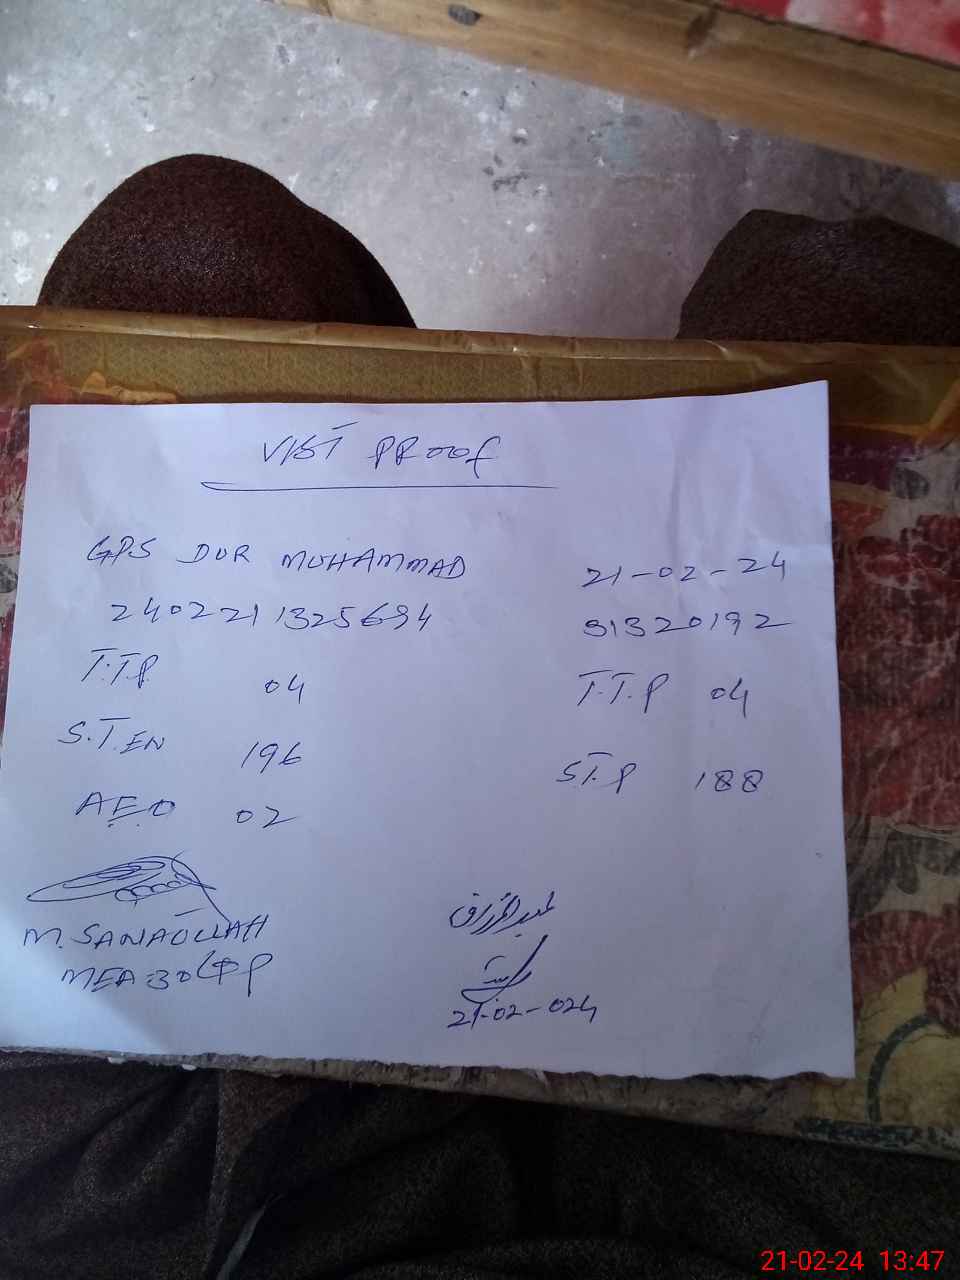 VIST PROOF
GPS DUR MUHAMMAD 21-02-24
2402211325694 31320192
T.T.P 04 T.T.P 04
S.T.EN 196 S.T.P 188
A.E.O 02
M. SANAULLAH
MEA-30
عبدالرزاق
21-02-024
21-02-24 13:47